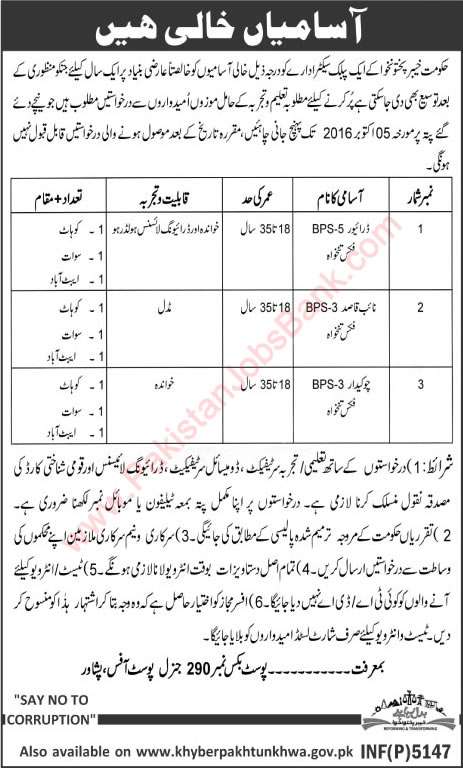 آسامیاں خالی ہیں
حکومت خیبر پختونخوا کے ایک پبلک سیکٹر ادارے کو درجہ ذیل خالی آسامیوں کو خالصتاً عارضی بنیاد پر ایک سال کیلئے جنکو منظوری کے
بعد توسیع بھی دی جا سکتی ہے پُر کرنے کیلئے مطلوبہ تعلیم و تجربہ کے حامل موزوں اُمیدواروں سے درخواستیں مطلوب ہیں جو نیچے دئے
گئے پتہ پر مورخہ 05 اکتوبر 2016 تک پہنچ جانی چاہئیں، مقررہ تاریخ کے بعد موصول ہونے والی درخواستیں قابل قبول نہیں
ہونگی۔
نمبر شمار آسامی کا نام عمر کی حد قابلیت و تجربہ تعداد + مقام
1 ڈرائیور BPS-5 18 تا 35 سال خواندہ اور ڈرائیونگ لائسنس ہولڈر ہو 1 - کوہاٹ
فکس تنخواہ 1 - سوات
1 - ایبٹ آباد
2 نائب قاصد BPS-3 18 تا 35 سال مڈل 1 - کوہاٹ
فکس تنخواہ 1 - سوات
1 - ایبٹ آباد
3 چوکیدار BPS-3 18 تا 35 سال خواندہ 1 - کوہاٹ
فکس تنخواہ 1 - سوات
1 - ایبٹ آباد
شرائط: 1) درخواستوں کے ساتھ تعلیمی/تجربہ سرٹیفیکیٹ، ڈومیسائل سرٹیفیکیٹ، ڈرائیونگ لائیسنس اور قومی شناختی کارڈ کی
مصدقہ نقول منسلک کرنا لازمی ہے۔ درخواستوں پر اپنا مکمل پتہ بمعہ ٹیلیفون یا موبائل نمبر لکھنا ضروری ہے۔
2) تقرریاں حکومت کے مروجہ ترمیم شدہ پالیسی کے مطابق کی جائیگی۔ 3) سرکاری و نیم سرکاری ملازمین اپنے محکموں کی
وساطت سے درخواستیں ارسال کریں۔ 4) تمام اصل دستاویزات بوقت انٹرویو لانا لازمی ہونگے۔ 5) ٹیسٹ/انٹرویو کیلئے
آنے والوں کو کوئی ٹی اے/ڈی اے نہیں دیا جائیگا۔ 6) افسر مجاز کو اختیار حاصل ہے کہ وہ وجہ بتا کر اشتہار ہذا کو منسوخ کر
دیں۔ ٹیسٹ و انٹرویو کیلئے صرف شارٹ لسٹڈ امیدواروں کو بلایا جائیگا۔
بمعرفت۔۔۔۔۔۔۔۔۔۔۔ پوسٹ بکس نمبر 290 جنرل پوسٹ آفس، پشاور
"SAY NO TO
CORRUPTION"
REFORMING & TRANSFORMING
Also available on www.khyberpakhtunkhwa.gov.pk INF(P)5147
www.PakistanJobsBank.com